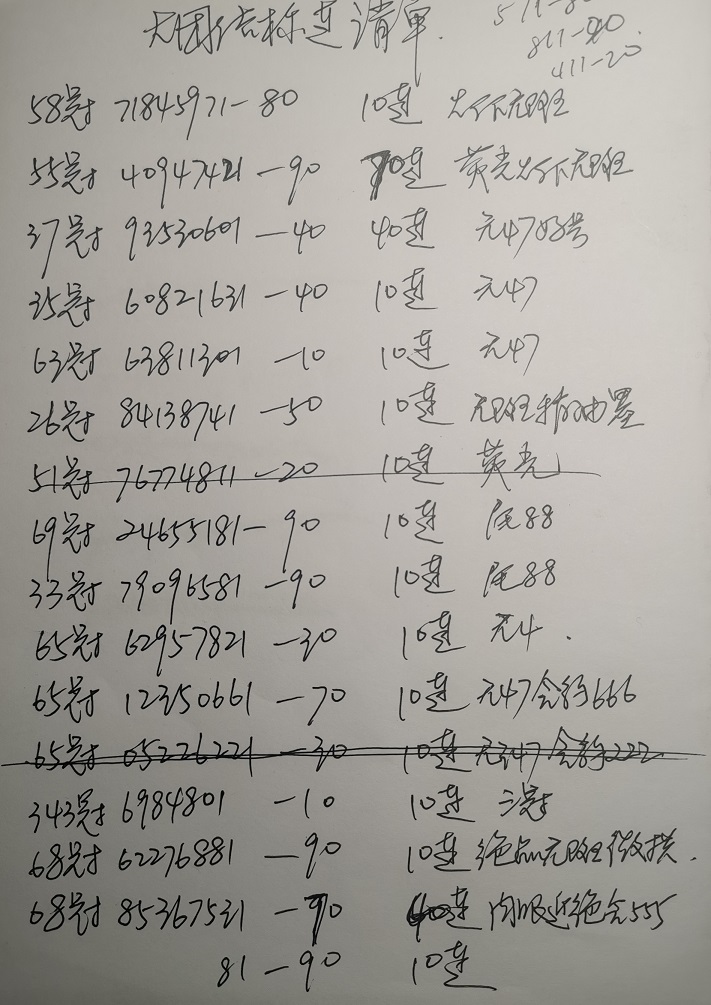 大团结标连清单.
811-20
411-20
58冠 71845971-80 10连 火下无斑
55冠 40947421-90 10连 荧光火下无斑
37冠 93530601-40 40连 无47好号
35冠 60821631-40 10连 无47
63冠 63811301-10 10连 无47
26冠 84138741-50 10连 无斑 油墨
51冠 76774811-20 10连 荧光
69冠 24655181-90 10连 尾88
33冠 79096581-90 10连 尾88
65冠 62957821-30 10连 无4.
65冠 12350661-70 10连 无47含豹666
65冠 05226221-30 10连 无47含豹222
343冠 6984801-10 10连 三冠
68冠 62276881-90 10连 绝品无斑微拱.
68冠 85367531-70 40连 肉眼近绝含555
81-90 10连